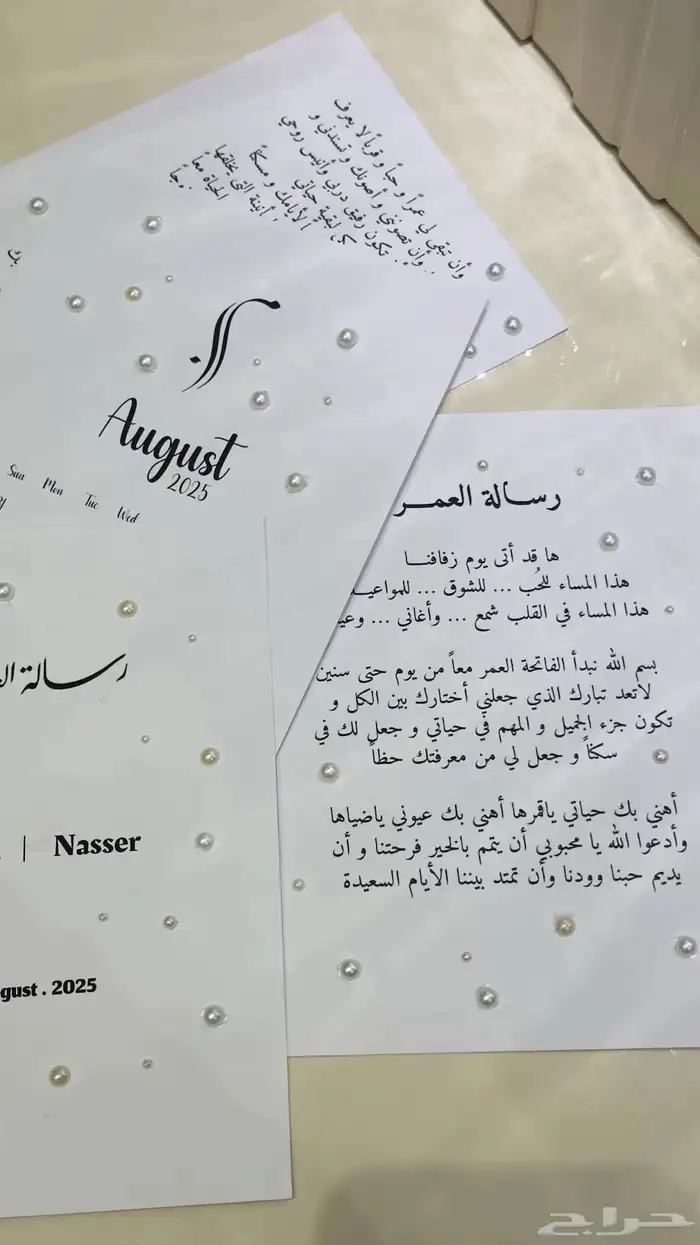 وأن تبقى لي عمراً و حباً و قرباً لا يعرف
وأن تصونني و أصونك و تسندني و
تكون رفيق دربي وأنيس روحي
لبقية حياتي
لأيامك و مسكناً
التي يخلقها
الحياة معاً
August
2025
Sun Mon Tue Wed
رسالة العمر
ها قد أتى يوم زفافنا
هذا المساء للحُب ... للشوق ... للمواعيد
هذا المساء في القلب شمع ... وأغاني ... وعيد
بسم الله نبدأ الفاتحة العمر معاً من يوم حتى سنين
لاتعد تبارك الذي جعلني أختارك بين الكل و
تكون جزء الجميل و المهم في حياتي و جعل لك في
سكناً و جعل لي من معرفتك حظاً
أهني بك حياتي ياقمرها أهني بك عيوني ياضياها
وأدعوا الله يا محبوبي أن يتمم بالخير فرحتنا و أن
يديم حبنا وودنا وأن تمتد بيننا الأيام السعيدة
رسالة
| Nasser
gust . 2025
حراج